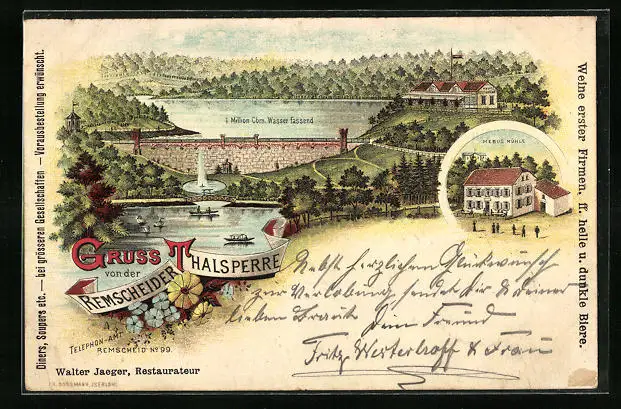 Diners, Soupers etc. — bei grösseren Gesellschaften — Vorausbestellung erwünscht.
1 Million Cbm. Wasser fassend
MEBUS MÜHLE
Weine erster Firmen, ff. helle u. dunkle Biere.
GRUSS
von der
REMSCHEIDER THALSPERRE
Nebst herzlichem Glückwunsch
zur Verlobung sendet Dir & Deiner
lieben Braut
Dein Freund
Fritz Westerhoff & Frau
TELEPHON-AMT
REMSCHEID No 99.
Walter Jaeger, Restaurateur